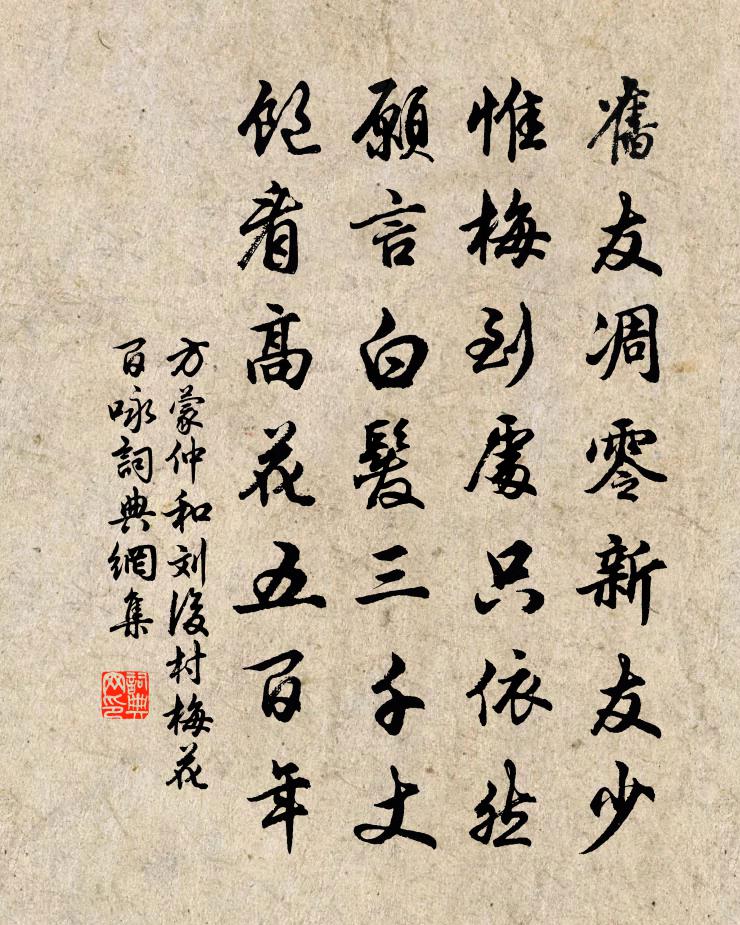 舊友凋零新友少
惟梅到處只依然
願言白髮三千丈
飽看高花五百年
方蒙仲和刘後村梅花
百咏詞典網集
詞典網印